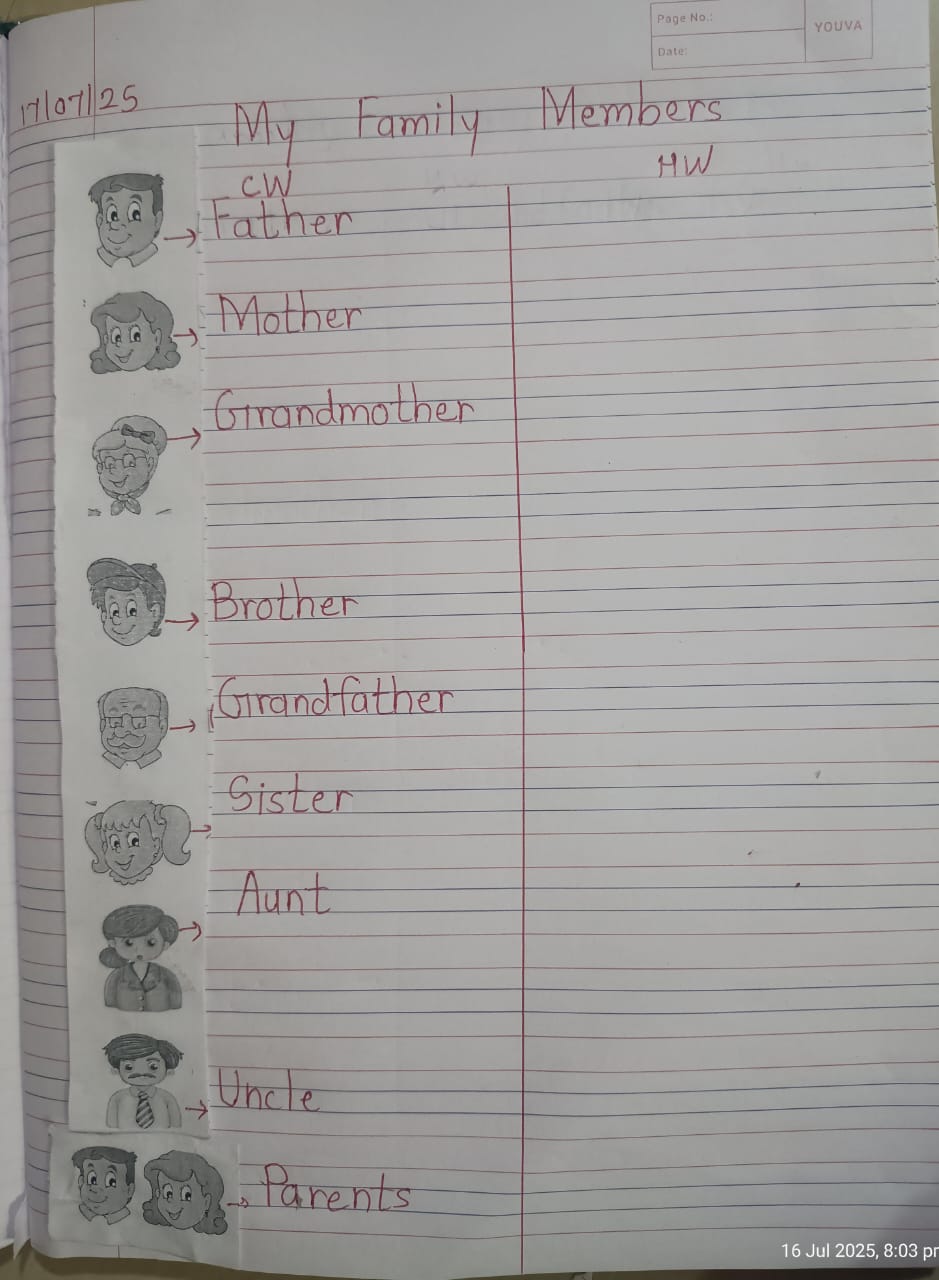 Page No.:
YOUVA
Date:
17/07/25
My Family Members
CW
HW
Father
Mother
Grandmother
Brother
Grandfather
Sister
Aunt
Uncle
Parents
16 Jul 2025, 8:03 pr